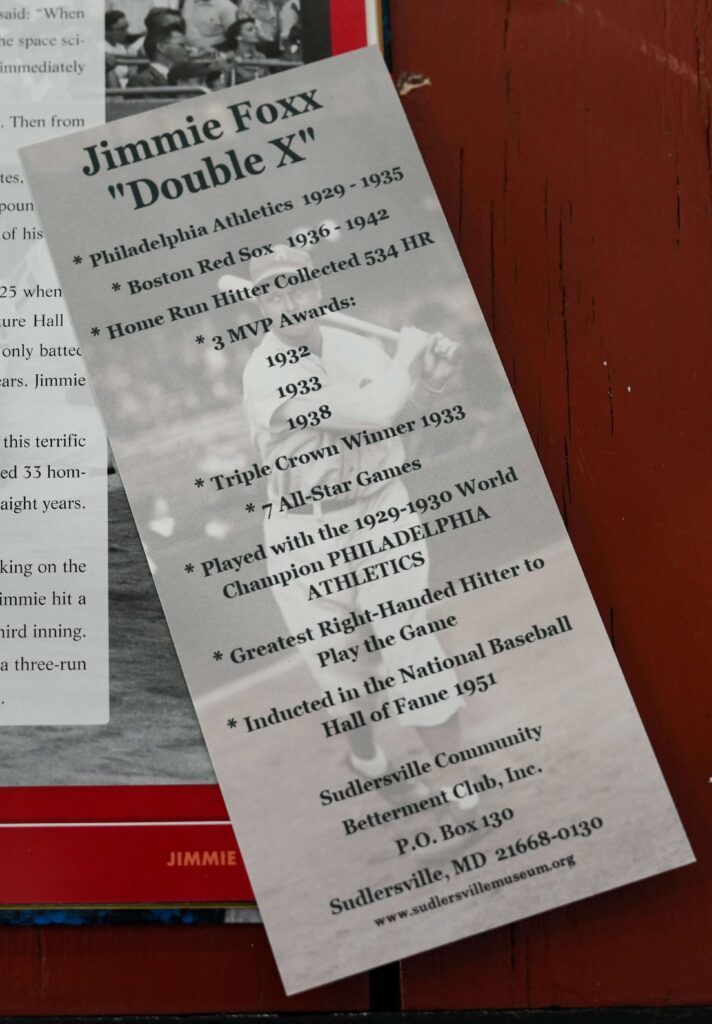 said: "When
he space sci-
immediately
. Then from
tes,
poun
of his
25 when
ture Hall
only batted
ears. Jimmie
this terrific
ed 33 hom-
aight years.
king on the
immie hit a
hird inning.
a three-run
.
JIMMIE
Jimmie Foxx
"Double X"
* Philadelphia Athletics 1929 - 1935
* Boston Red Sox 1936 - 1942
* Home Run Hitter Collected 534 HR
* 3 MVP Awards:
1932
1933
1938
* Triple Crown Winner 1933
* 7 All-Star Games
* Played with the 1929-1930 World
Champion PHILADELPHIA
ATHLETICS
* Greatest Right-Handed Hitter to
Play the Game
* Inducted in the National Baseball
Hall of Fame 1951
Sudlersville Community
Betterment Club, Inc.
P.O. Box 130
Sudlersville, MD 21668-0130
www.sudlersvillemuseum.org